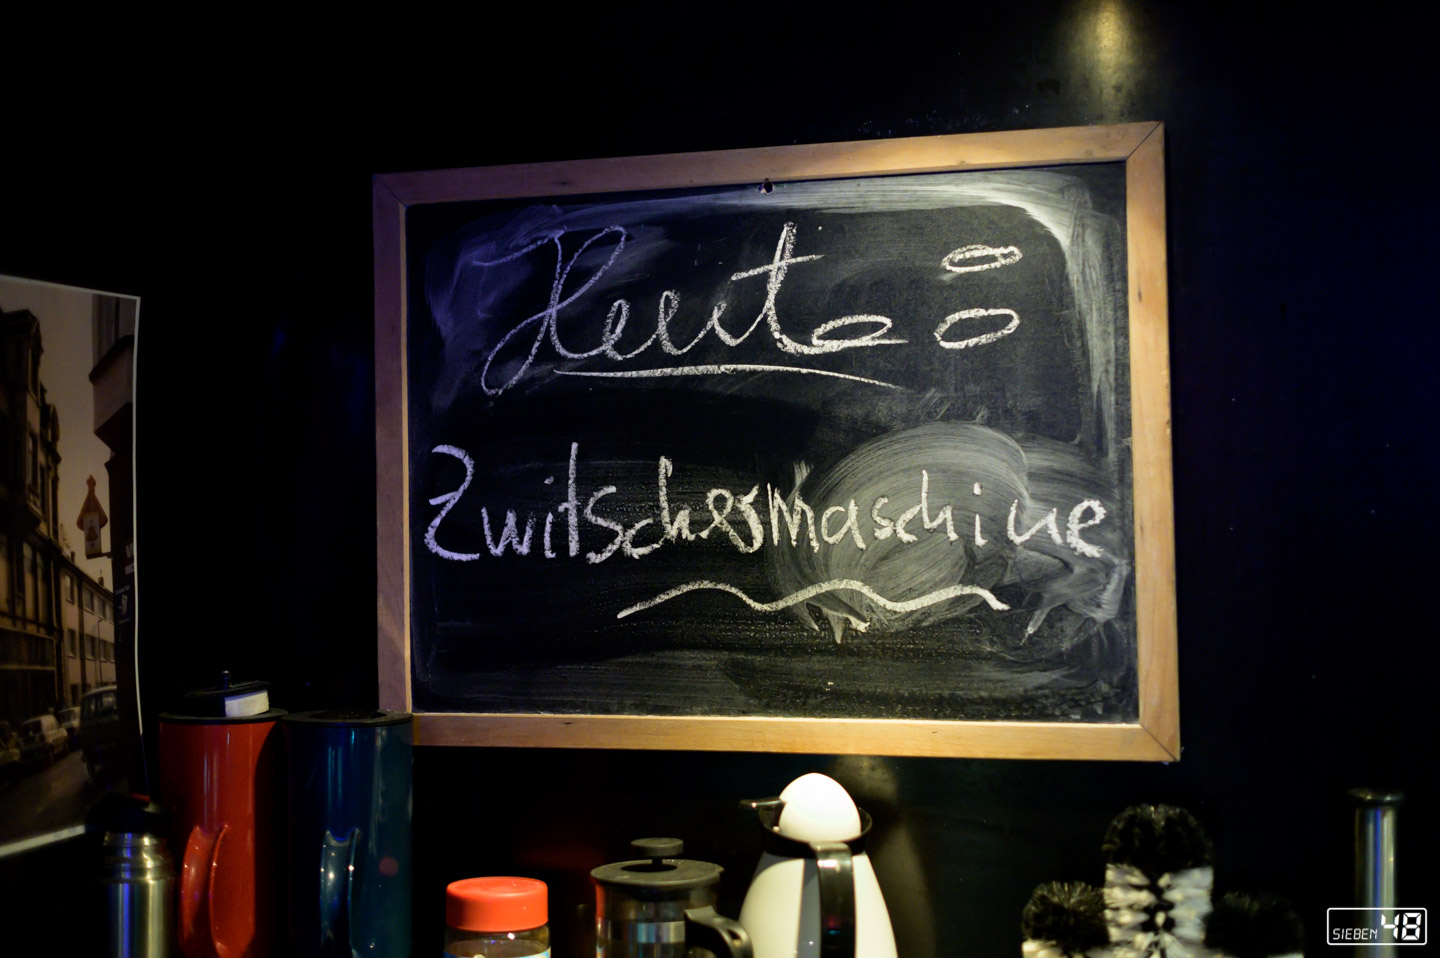 Heute:
Zwitschermaschine
SIEBEN 48